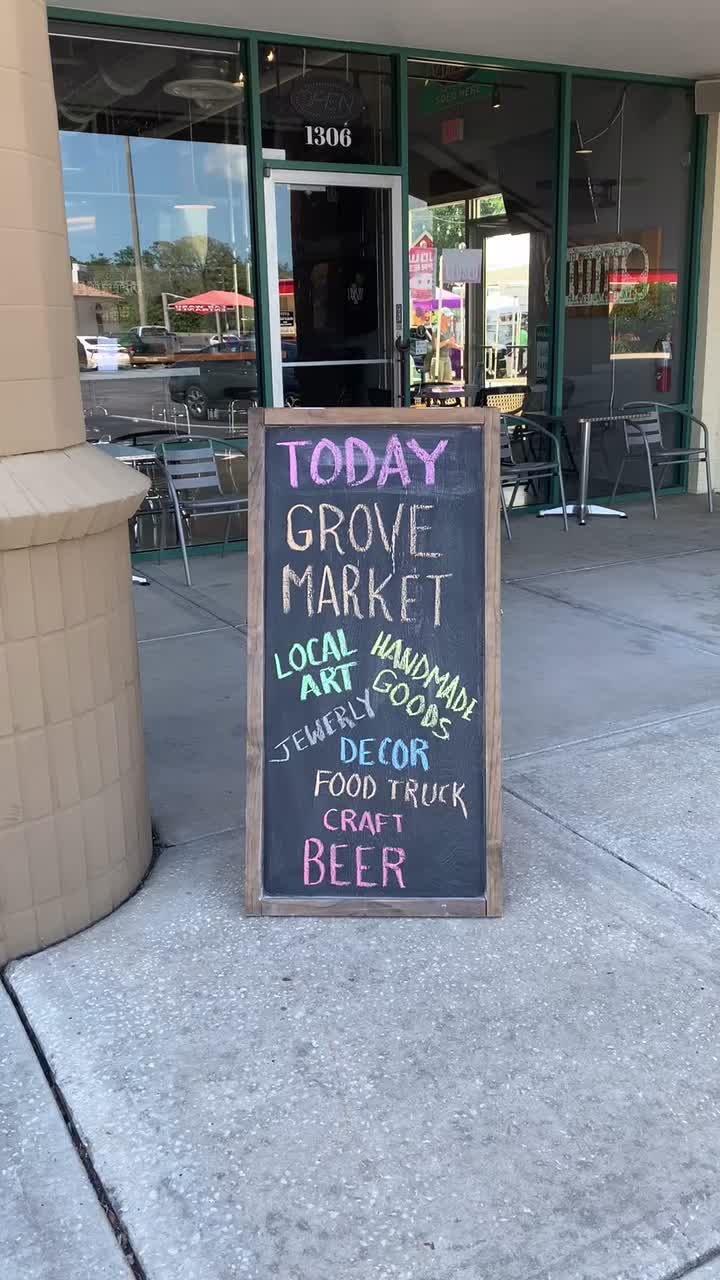 OPEN
1306
TODAY
GROVE
MARKET
LOCAL
ART
HANDMADE
GOODS
JEWERLY
DECOR
FOOD TRUCK
CRAFT
BEER